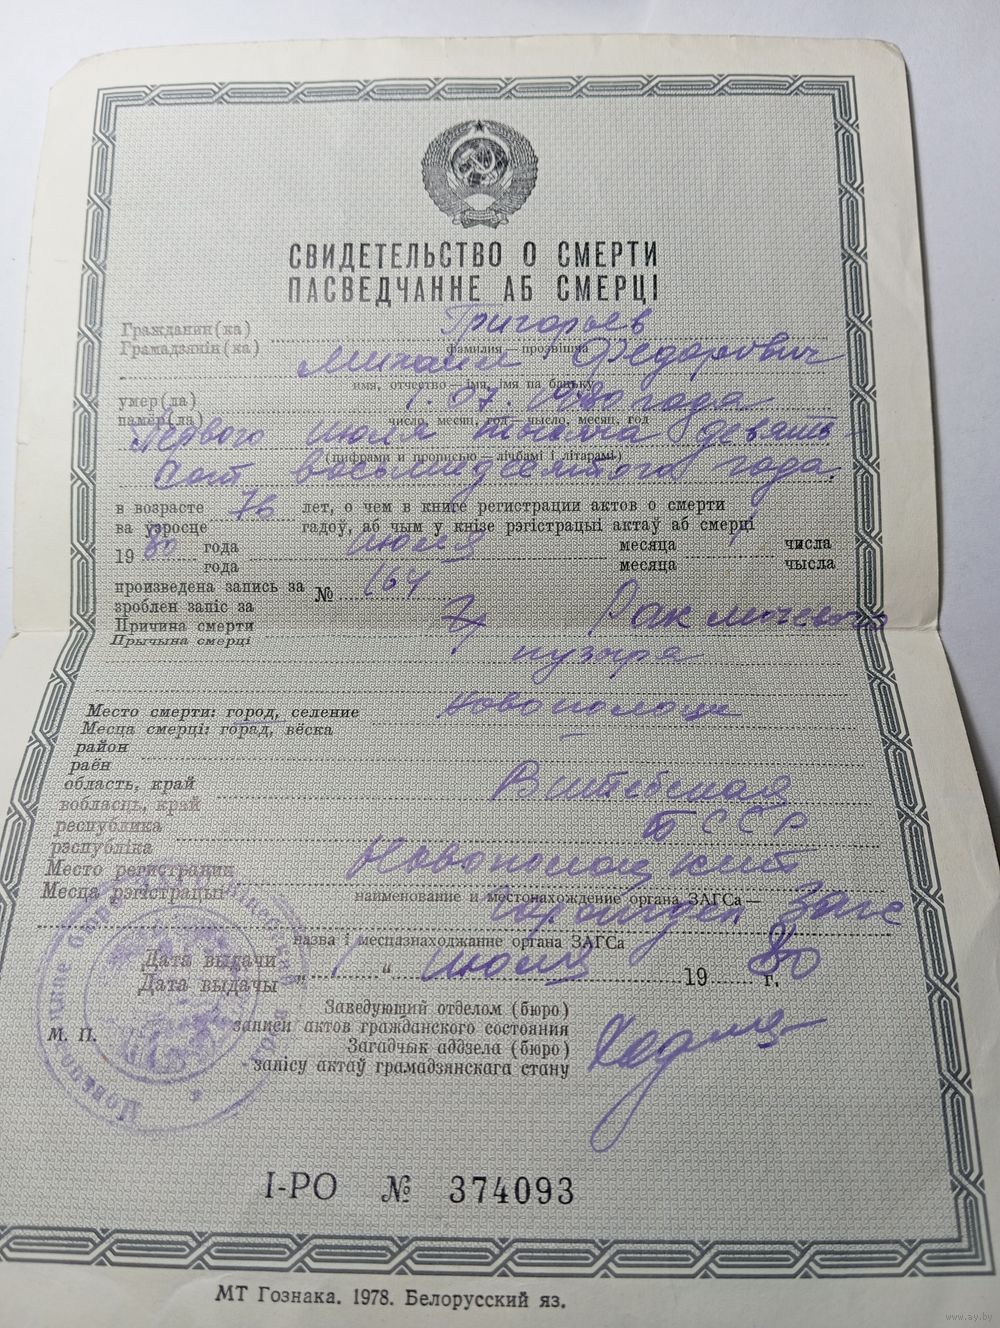 СВИДЕТЕЛЬСТВО О СМЕРТИ
ПАСВЕДЧАННЕ АБ СМЕРЦІ
Гражданин(ка) Григорьев
Грамадзянін(ка) фамилия — прозвішча
Михаил Федорович
имя, отчество — імя, імя па бацьку
умер(ла) 1. 07. 1980 года
памёр(ла) число, месяц, год — чысло, месяц, год
Первого июля тысяча девять-
(цифрами и прописью — лічбамі і літарамі)
сот восьмидесятого года.
в возрасте 76 лет, о чем в книге регистрации актов о смерти
ва ўзросце гадоў, аб чым у кнізе рэгістрацыі актаў аб смерці
19 80 года июля месяца 1 числа
года месяца чысла
произведена запись за № 164
зроблен запіс за
Причина смерти Рак мочевого
Прычына смерці
пузыря
Место смерти: город, селение Новополоцк
Месца смерці: горад, вёска
район
раён
область, край Витебская
вобласць, край
республика БССР
рэспубліка
Место регистрации Новополоцкий
Месца рэгістрацыі наименование и местонахождение органа ЗАГСа —
горотдел Загс
назва і месцазнаходжанне органа ЗАГСа
Дата выдачи "1" июля 19 80 г.
Дата выдачы
Заведующий отделом (бюро)
М. П. записи актов гражданского состояния
Загадчык аддзела (бюро)
запісу актаў грамадзянскага стану
I-РО № 374093
МТ Гознака. 1978. Белорусский яз.
www.ay.by